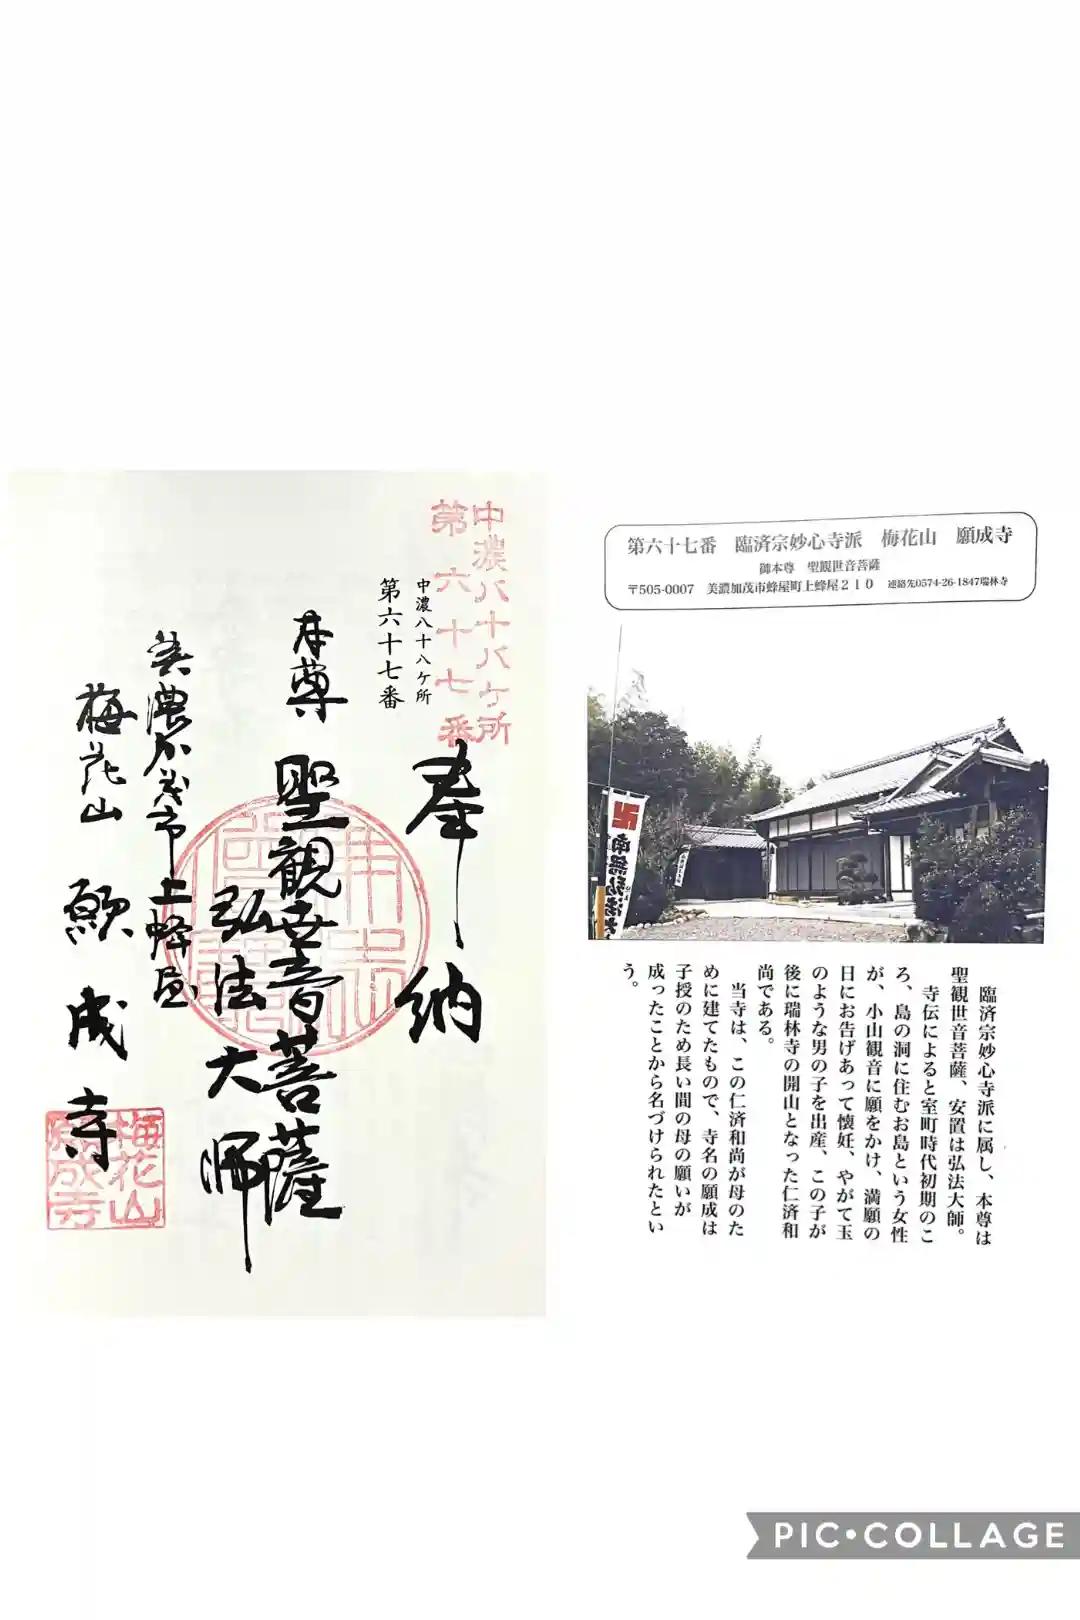 中濃八十八ケ所
第六十七番
中濃八十八ケ所
第六十七番
奉納
本尊 聖観世音菩薩
弘法大師
美濃加茂市上蜂屋
梅花山 願成寺
梅花山
願成寺
第六十七番 臨済宗妙心寺派 梅花山 願成寺
御本尊 聖観世音菩薩
〒505-0007 美濃加茂市蜂屋町上蜂屋210 連絡先0574-26-1847瑞林寺
卍南無弘法大
臨済宗妙心寺派に属し、本尊は
聖観世音菩薩、安置は弘法大師。
寺伝によると室町時代初期のこ
ろ、島の洞に住むお島という女性
が、小山観音に願をかけ、満願の
日にお告げあって懐妊、やがて玉
のような男の子を出産、この子が
後に瑞林寺の開山となった仁済和
尚である。
当寺は、この仁済和尚が母のた
めに建てたもので、寺名の願成は
子授のため長い間の母の願いが
成ったことから名づけられたとい
う。
PIC•COLLAGE